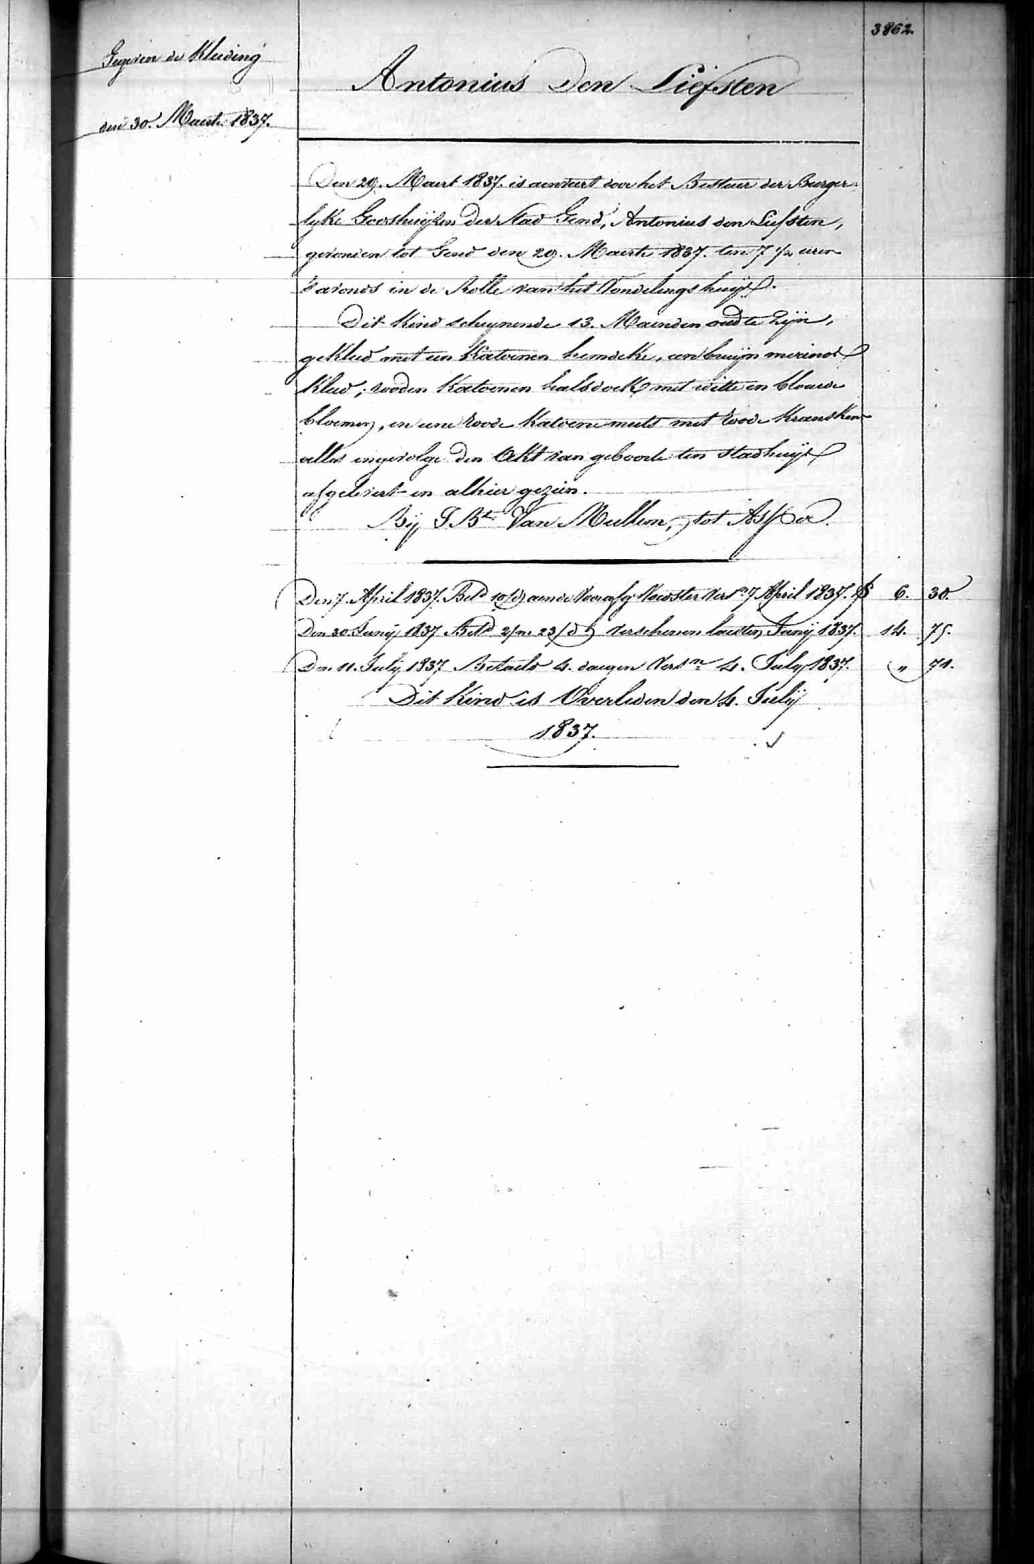 3862.
Gegeven de Kleeding
den 30. Maert 1837.
Antonius Den Liefsten
Den 29. Maert 1837. is aenvaert door het Bestuer der Burger-
lyke Godshuijzen der Stad Gend, Antonius den Liefsten,
gevonden tot Gend den 29. Maerte 1837. ten 7 1/2 uren
's avonds in de Rolle van het Vondelingshuijs.
Dit Kind schynende 13. Maenden oud te Zijn,
gekleed met een Katoenen hemdeke, een bruijn merinos
Kleed; rooden Katoenen halsdoek met witte en blauwe
bloemen, en eene roode Katoene muts met roode
alles ingevolge den Akt van geboorte ten Stadhuijze
afgelevert en alhier gezien.
Bij J. Bte Van Mullem, tot Asper.
Den 7. April 1837. Beth 10 aende Voorafg Voedster Versn 7 April 1837. 6. 30.
Den 30. Junij 1837 Beth 2/m 23/d Verschenen laesten Junij 1837. 14. 75.
Den 11. July 1837 Betaeld 4. daegen Versn 4. July 1837. " 71.
Dit Kind is Overleden den 4. Julij
1837.